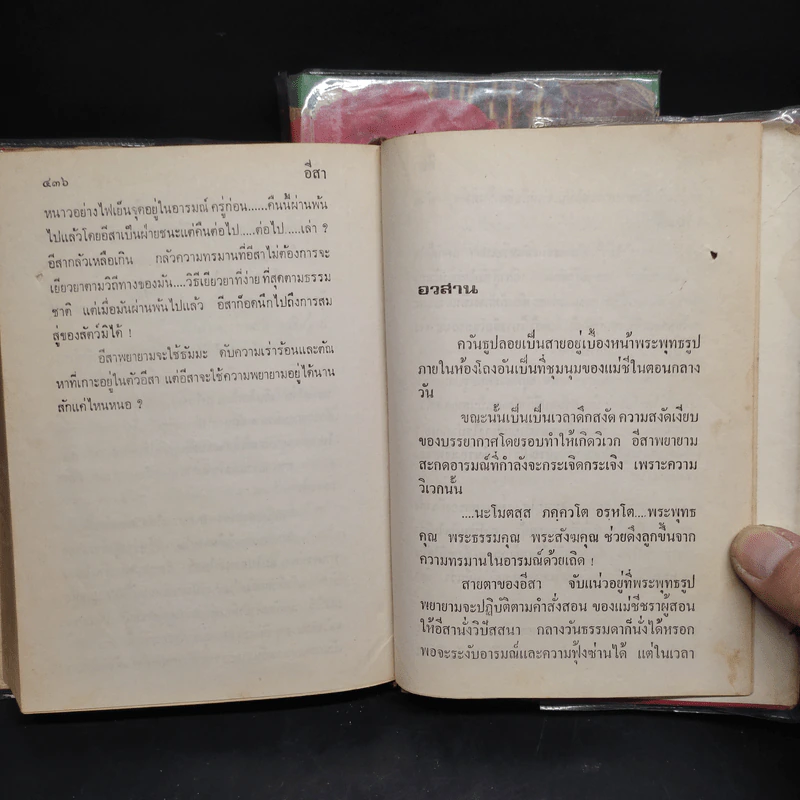 ๔๓๖
อีสา
หนาวอย่างไฟเย็นจุดอยู่ในอารมณ์ ครู่ก่อน......คืนนี้ผ่านพ้น
ไปแล้วโดยอีสาเป็นฝ่ายชนะแต่คืนต่อไป.....ต่อไป.....เล่า ?
อีสากลัวเหลือเกิน กลัวความทรมานที่อีสาไม่ต้องการจะ
เยียวยาตามวิถีทางของมัน....วิธีเยียวยาที่ง่ายที่สุดตามธรรม
ชาติ แต่เมื่อมันผ่านพ้นไปแล้ว อีสาก็อดนึกไปถึงการสม
สู่ของสัตว์มิได้ !
อีสาพยายามจะใช้ธัมมะ ดับความเร่าร้อนและตัณ
หาที่เกาะอยู่ในตัวอีสา แต่อีสาจะใช้ความพยายามอยู่ได้นาน
สักแค่ไหนหนอ ?
อวสาน
ควันธูปลอยเป็นสายอยู่เบื้องหน้าพระพุทธรูป
ภายในห้องโถงอันเป็นที่ชุมนุมของแม่ชีในตอนกลาง
วัน
ขณะนั้นเป็นเป็นเวลาดึกสงัด ความสงัดเงียบ
ของบรรยากาศโดยรอบทำให้เกิดวิเวก อีสาพยายาม
สะกดอารมณ์ที่กำลังจะกระเจิดกระเจิง เพราะความ
วิเวกนั้น
....นะโมตสฺส ภคฺควโต อรฺหโต....พระพุทธ
คุณ พระธรรมคุณ พระสังฆคุณ ช่วยดึงลูกขึ้นจาก
ความทรมานในอารมณ์ด้วยเถิด !
สายตาของอีสา จับแน่วอยู่ที่พระพุทธรูป
พยายามจะปฏิบัติตามคำสั่งสอน ของแม่ชีชราผู้สอน
ให้อีสานั่งวิปัสสนา กลางวันธรรมดาก็นั่งได้หรอก
พอจะระงับอารมณ์และความฟุ้งซ่านได้ แต่ในเวลา